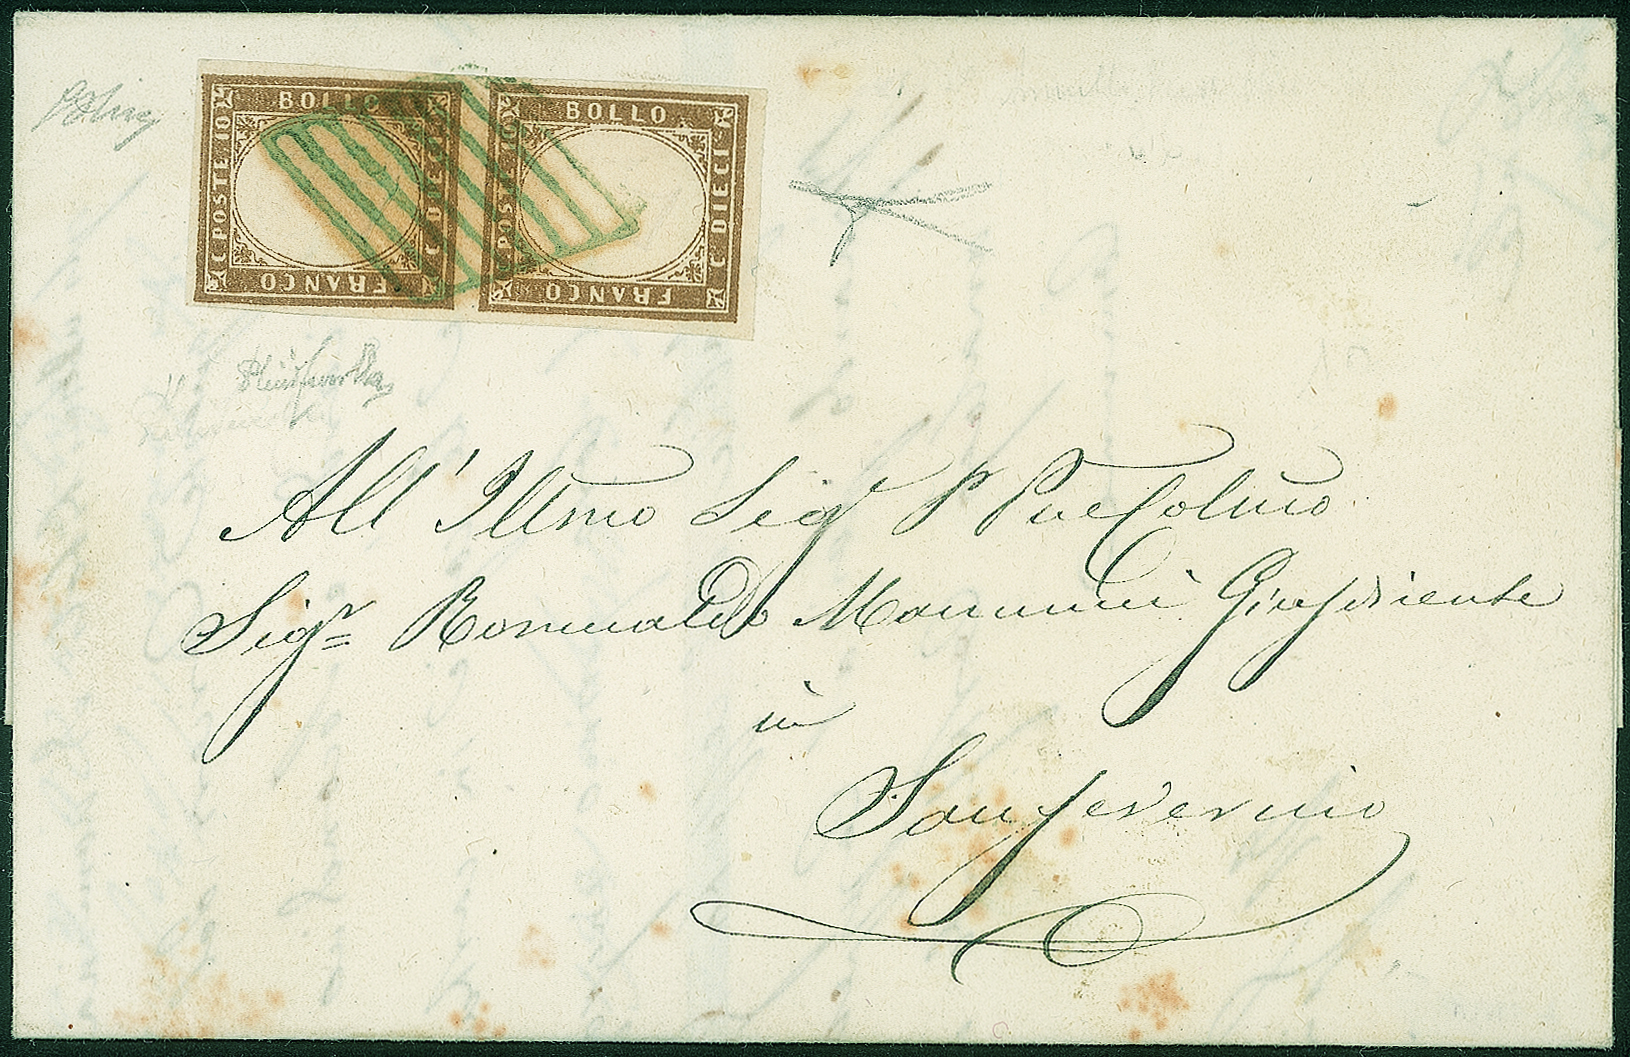 BOLLO BOLLO
C. POSTE 10 C. DIECI C. POSTE 10 C. DIECI
FRANCO FRANCO
All' Illmo Sigr P Pne Colmo
Sigr Romualdo Mannucci Giusdicente
in
Sanseverino